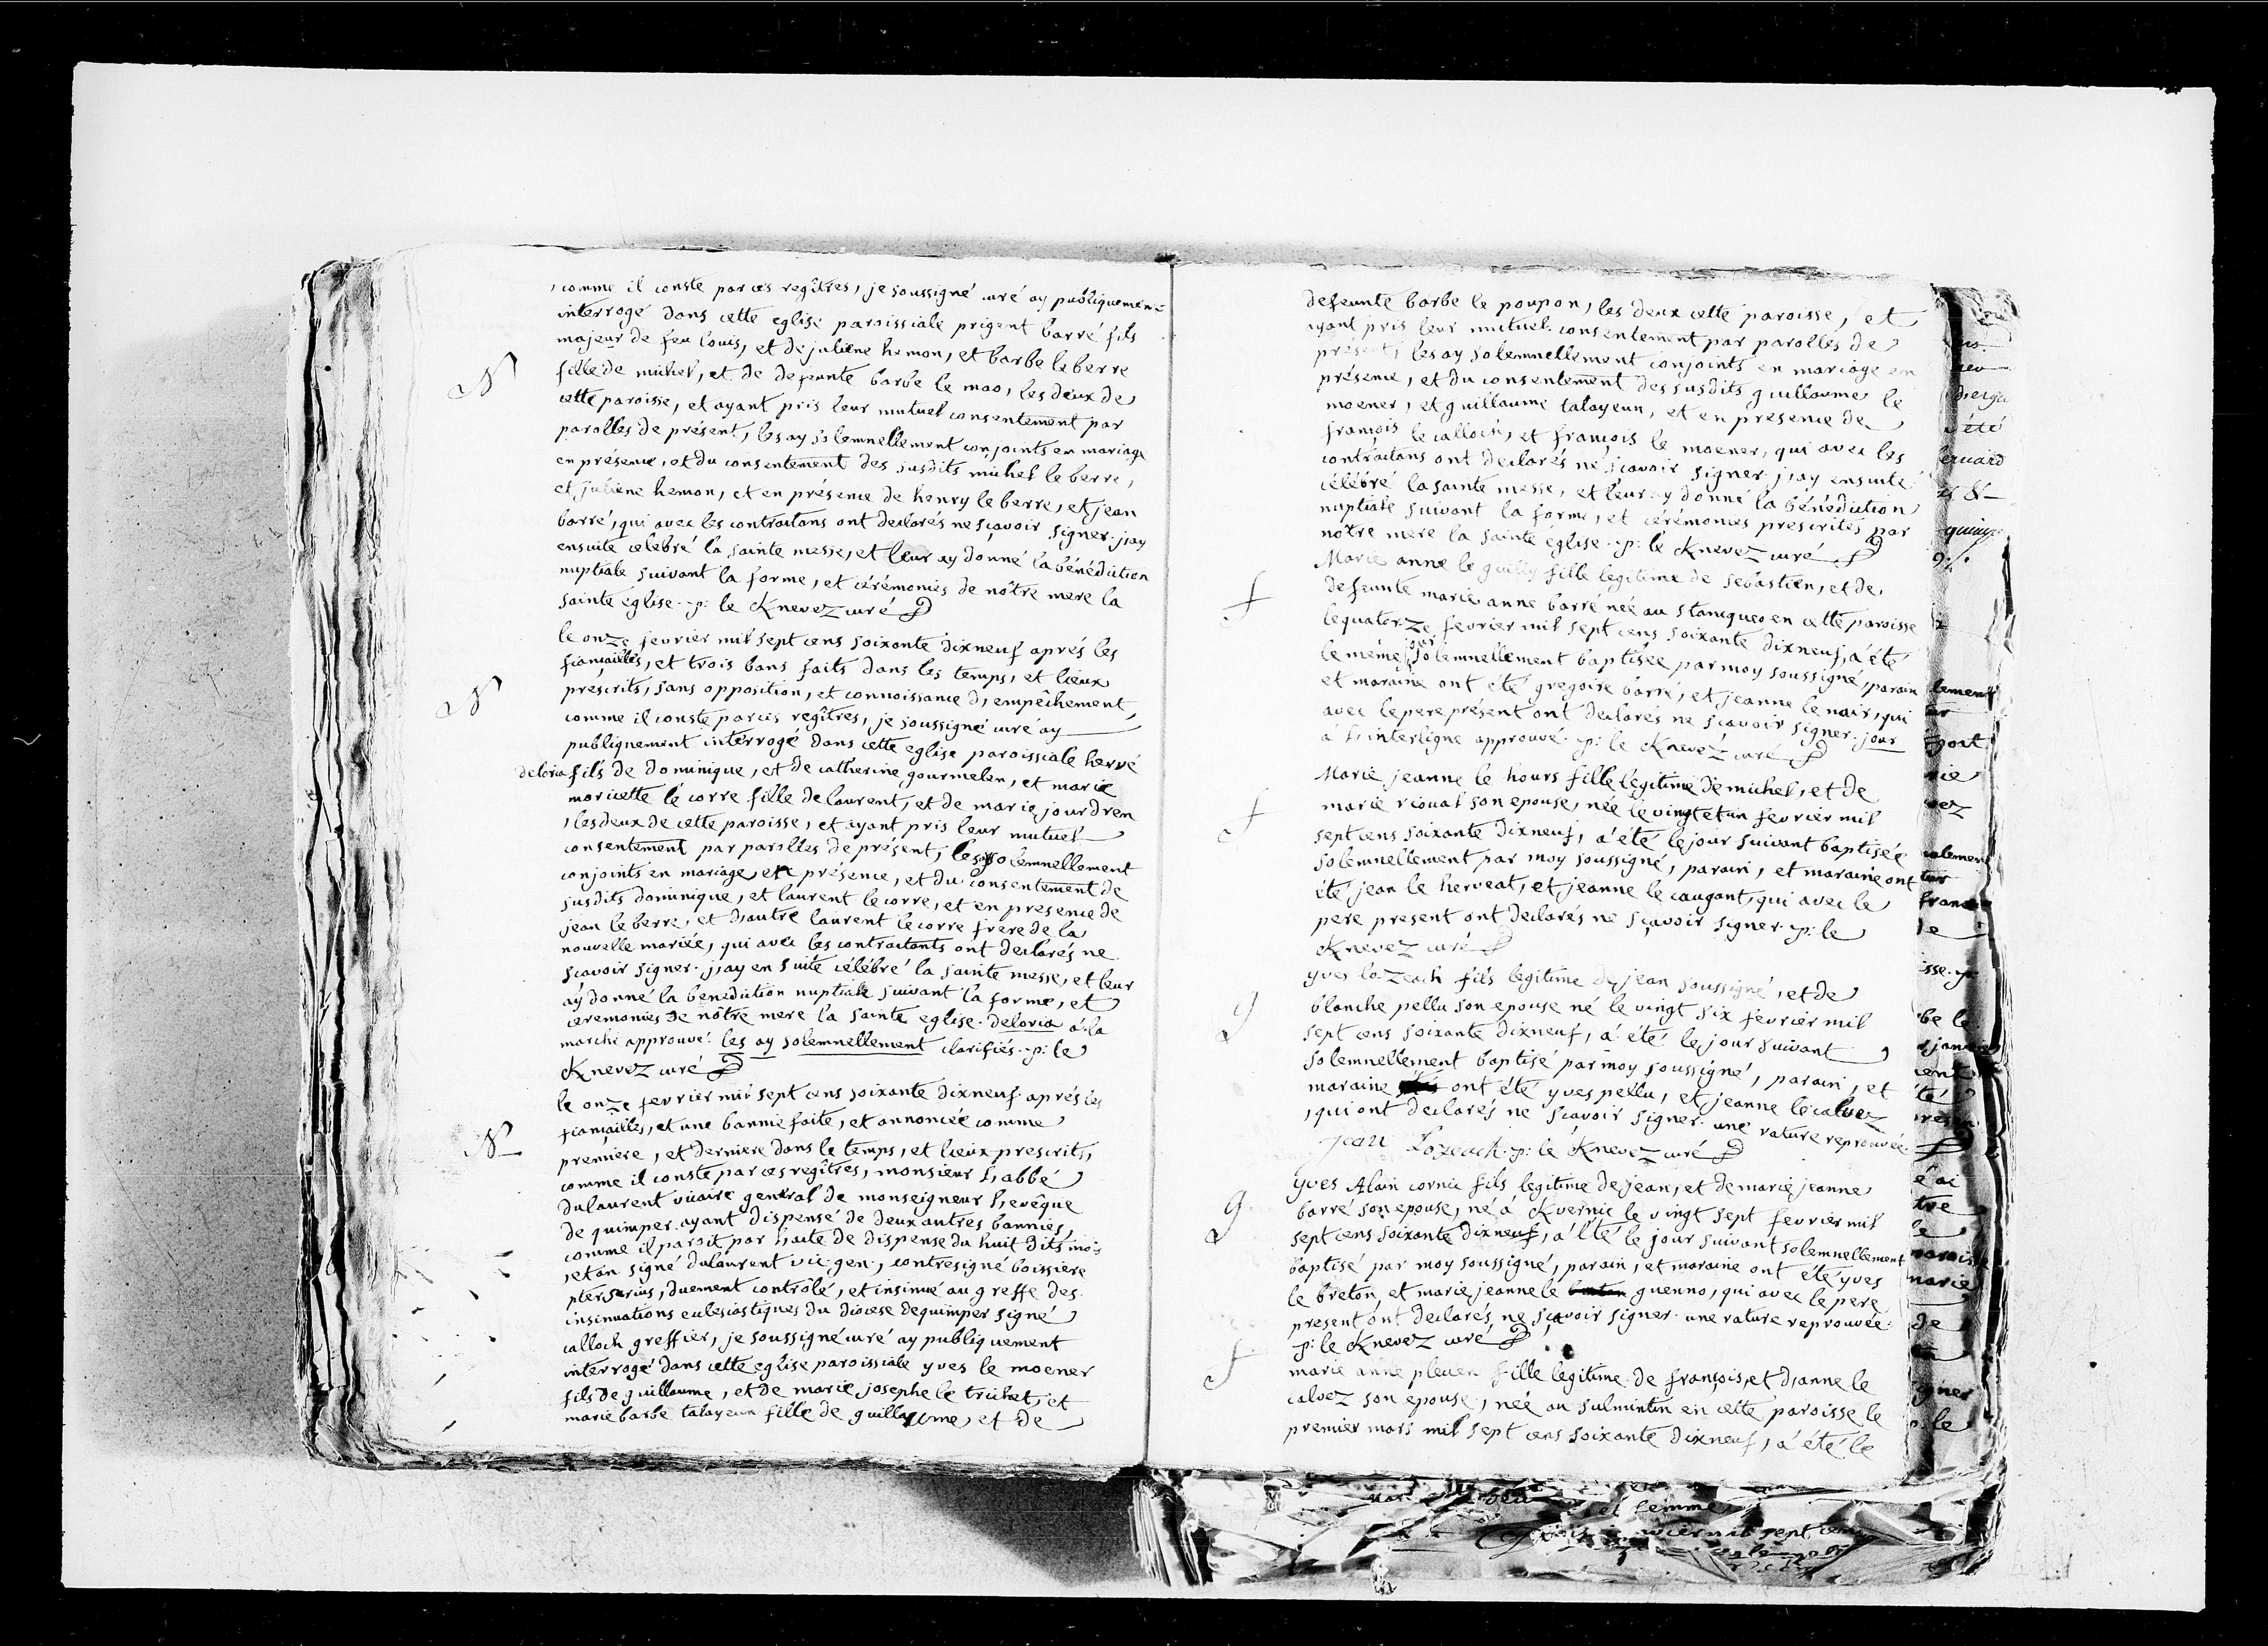 , comme il conste par ces regîtres, je soussigné curé ay publiquement
interrogé dans cette eglise paroissiale prigent barré fils
majeur de feu louis, et de juliene hemon, et barbe le berre
N
fille de michel, et de defeunte barbe le mao, les deux de
cette paroisse, et ayant pris leur mutuel consentement par
parolles de présent, les ay solemnellement conjoints en mariage
en présence, et du consentement des susdits michel le berre,
et juliene hemon, et en présence de henry le berre, et jean
barré, qui avec les contractans ont declarés ne sçavoir signer. j,ay
ensuite celebré la sainte messe, et leur ay donné la bénédiction
nuptiale suivant la forme, et cérémonies de nôtre mere la
sainte eglise. p: le Knevez curé
le onze fevrier mil sept cens soixante dixneuf aprés les
fiançailles, et trois bans faits dans les temps, et lieux
N
prescrits, sans opposition, et connoissance d,empêchement,
comme il conste par ces regîtres, je soussigné curé ay
publiquement interrogé dans cette eglise paroissiale hervé
deloria fils de dominique, et de catherine gourmelen, et marie
moricette le corre fille de laurent, et de marie jourdren
, les deux de cette paroisse, et ayant pris leur mutuel
consentement par parolles de présent, les ay solemnellement
conjoints en mariage, en présence, et du consentement de
susdits dominique, et laurent le corre, et en presence de
jean le berre, et d,autre laurent le corre frere de la
nouvelle mariée, qui avec les contractants ont declarés ne
sçavoir signer. j,ay en suite célébré la sainte messe, et leur
aÿ donné la benediction nuptiale suivant la forme, et
ceremonies de nôtre mere la sainte eglise. deloria à la
marche approuvé. les ay solemnellement clarifiés. p: le
Knevez curé
le onze fevrier mil sept cens soixante dixneuf. aprés les
fiançailles, et une bannie faite, et annoncée comme
N
premiere, et derniere dans le temps, et lieux prescrits,
comme il conste par ces regîtres, monsieur l,abbé
dulaurent vicaire general de monseigneur l,evêque
de quimper ayant dispensé de deux autres bannies,
comme il paroit par l'acte de dispense du huit dits mois
, et an signé dulaurent vic. gen., contresigné boissiere
pter Srius, duement contrôlé, et insinué au greffe des
insinuations eclesiastiques du diocese de quimper signé
calloch greffier, je soussigné curé ay publiquement
interrogé dans cette eglise paroissiale yves le moener
fils de guillaume, et de marie josephe le trichet, et
marie barbe talayeun fille de guillaume, et de
defeunte barbe le poupon, les deux cette paroisse, et
ayant pris leur mutuel consentement par parolles de
présent, les ay solemnellement conjoints en mariage en
présence, et du consentement des susdits guillaume le
moener, et guillaume talayeun, et en presence de
françois le calloch, et françois le moener, qui avec les
contractans ont declarés ne sçavoir signer j,ay ensuite
célébré la sainte messe, et leur ay donné la bénédiction
nuptiale suivant la forme, et cérémonies prescrites par
nôtre mere la sainte église. p: le Knevez curé
Marie anne le guilly fille legitime de sebastien, et de
f
defeunte marie anne barré née au stancqueo en cette paroisse
le quatorze fevrier mil sept cens soixante dixneuf, a été
jour
le même solemnellement baptisée par moy soussigné, parain
et maraine ont été gregoire barré, et jeanne le nair, qui
avec le pere présent ont declarés ne sçavoir signer. jour
à l,interligne approuvé. p: le Knevez curé
Marie jeanne le hours fille légitime de michel, et de
f
marie rioual son epouse, née le vingt et un fevrier mil
sept cens soixante dixneuf, a été le jour suivant baptisée
solemnellement par moy soussigné, parain, et maraine ont
été jean le herveat, et jeanne le caugant, qui avec le
pere present ont declarés ne sçavoir signer. p: le
Knevez curé
yves lozeach fils legitime de jean soussigné, et de
g
blanche pellu son epouse né le vingt six fevrier mil
sept cens soixante dixneuf, a été le jour suivant
solemnellement baptisé par moy soussigné, parain, et
maraine ont été yves pellu, et jeanne le calvez
, qui ont declarés ne sçavoir signer. une rature reprouvée.
jean Lozeach. p: le Knevez curé
yves Alain cornic fils legitime de jean, et de marie jeanne
g
barré son epouse, né à Kvernic le vingt sept fevrier mil
sept cens soixante dixneuf, a été le jour suivant solemnellement
baptisé par moy soussigné, parain, et maraine ont été yves
le breton, et marie jeanne le guenno, qui avec le pere
present ont declarés ne sçavoir signer. une rature reprouvée.
p: le Knevez curé
f
marie anne pleven fille legitime de françois, et d,anne le
calvez son epouse, née au sulmintin en cette paroisse le
premier mars mil sept cens soixante dixneuf, a été le